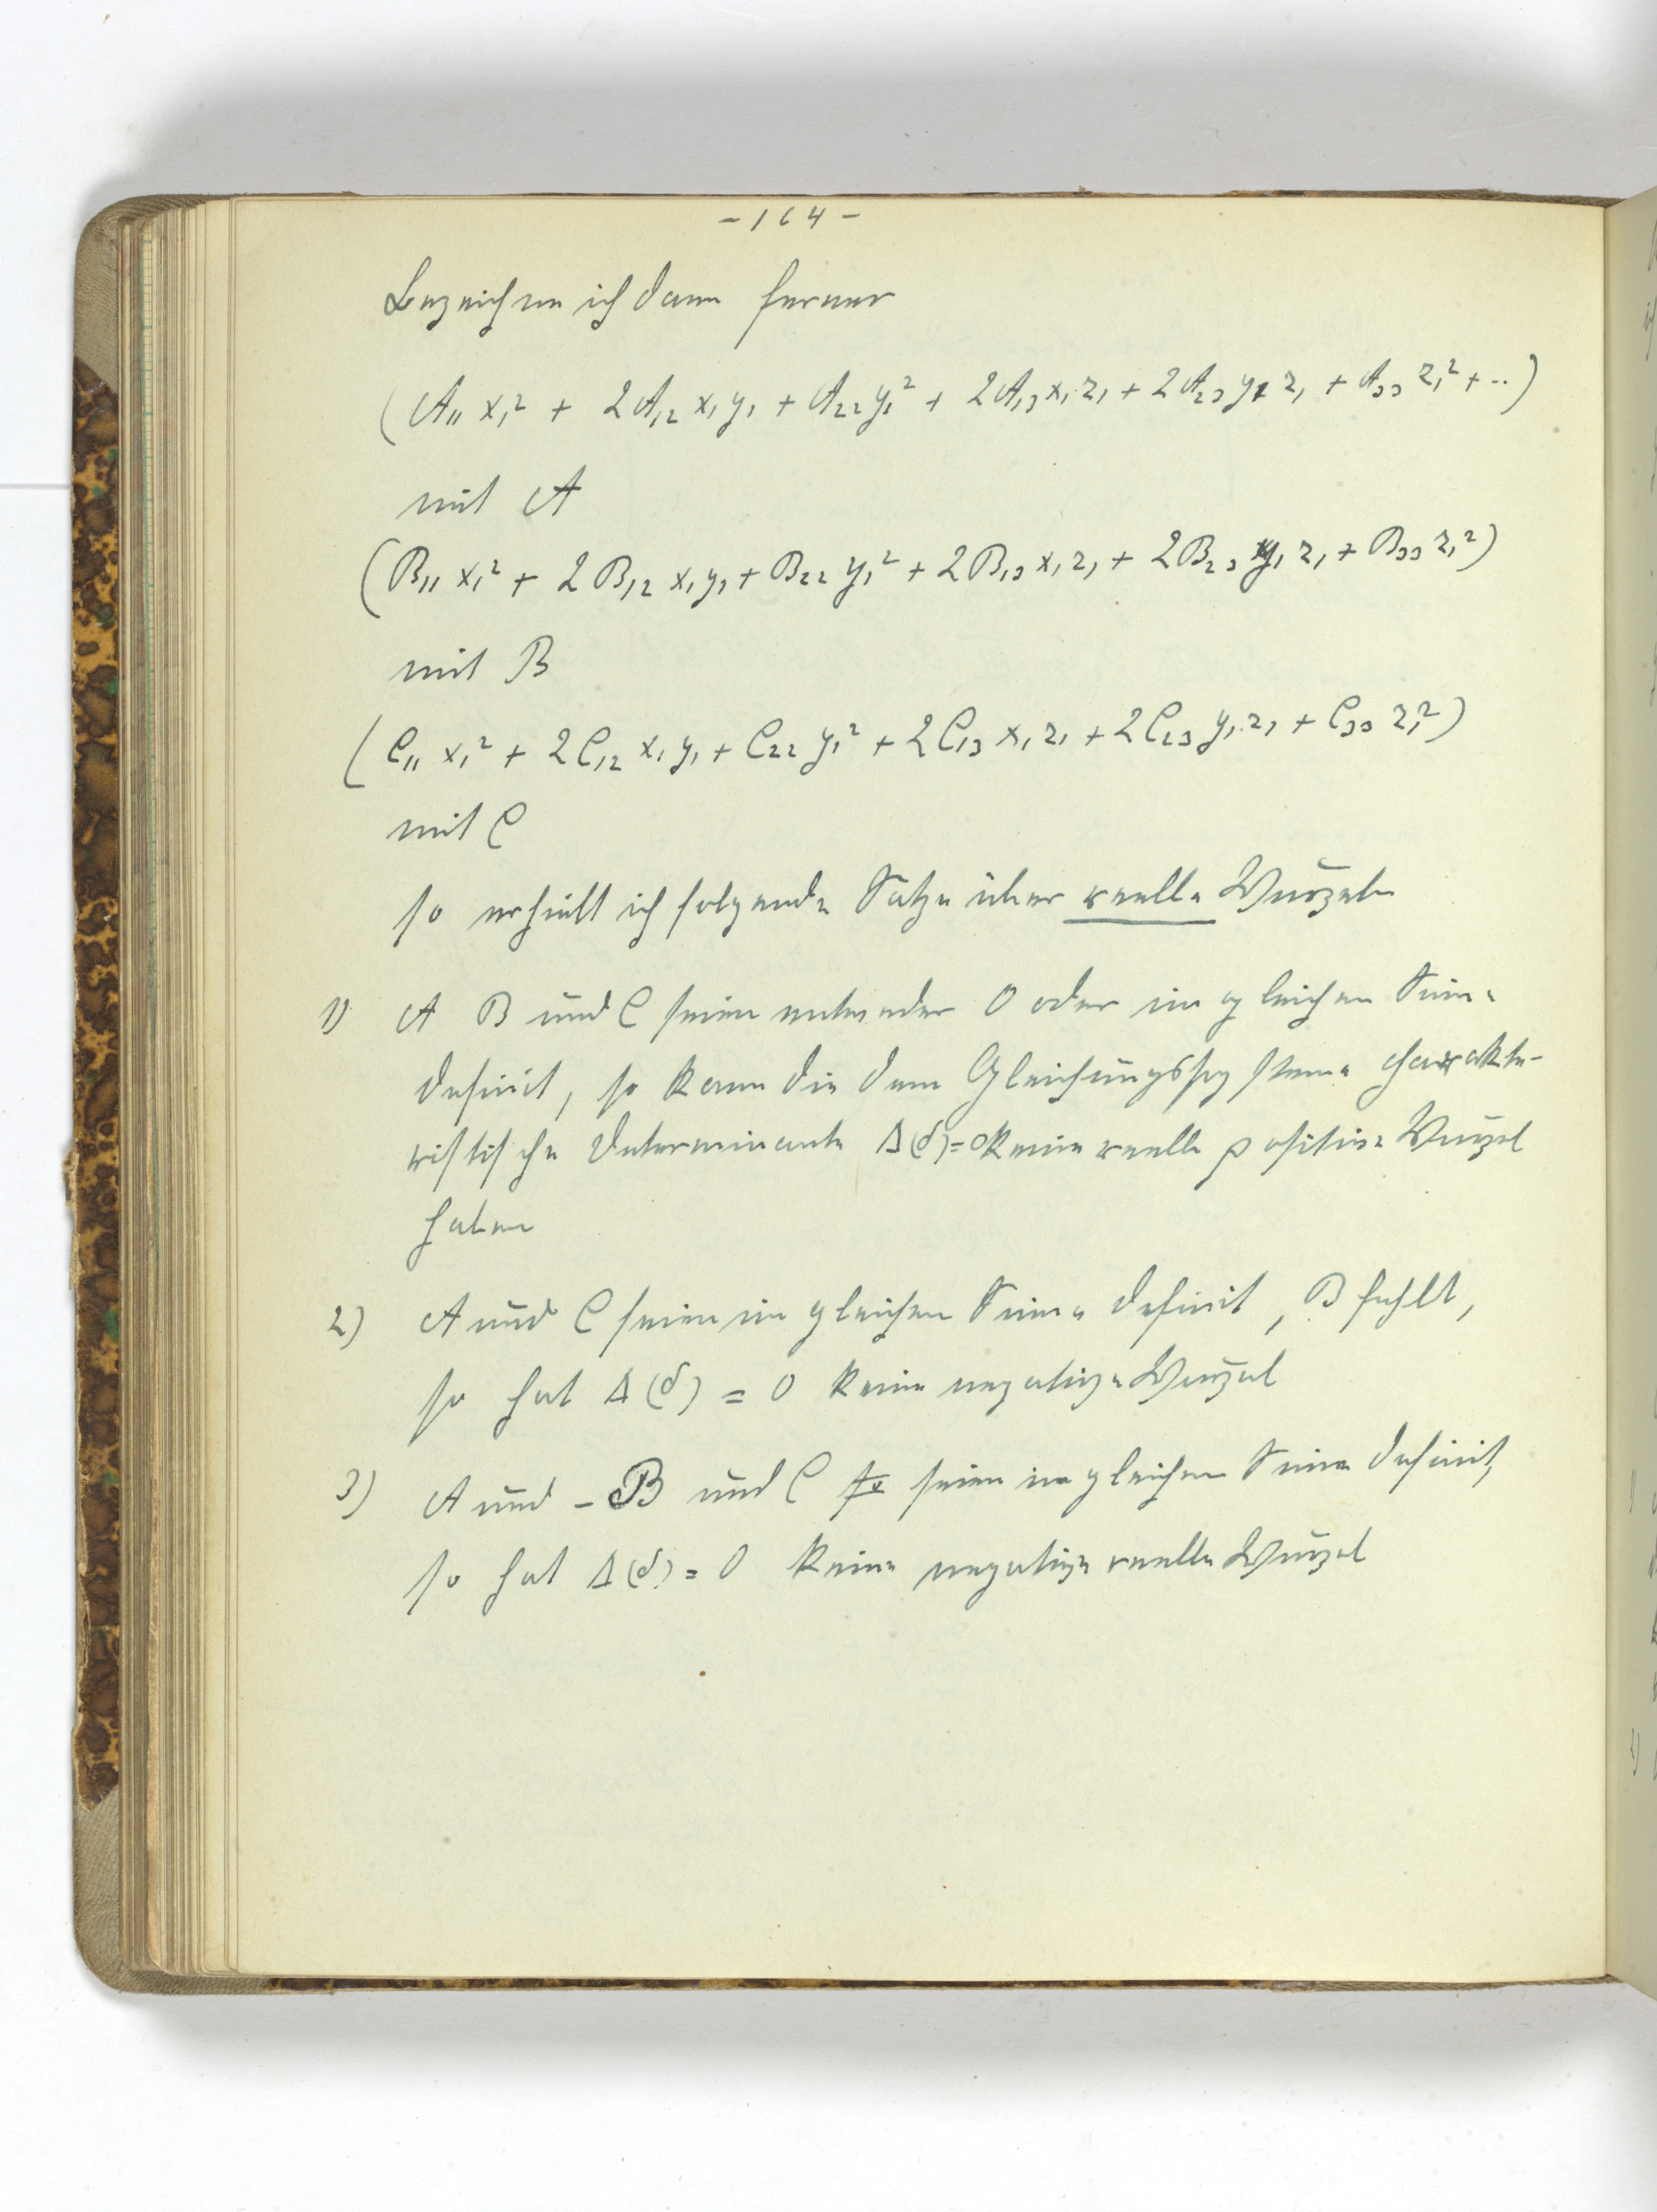 - 164 -
Bezeichne ich dann ferner
(A₁₁ x₁² + 2A₁₂ x₁ y₁ + A₂₂ y₁² + 2A₁₃ x₁ z₁ + 2A₂₃ y₁ z₁ + A₃₃ z₁² + ..)
mit A
(B₁₁ x₁² + 2B₁₂ x₁ y₁ + B₂₂ y₁² + 2B₁₃ x₁ z₁ + 2B₂₃ y₁ z₁ + B₃₃ z₁²)
mit B
(C₁₁ x₁² + 2C₁₂ x₁ y₁ + C₂₂ y₁² + 2C₁₃ x₁ z₁ + 2C₂₃ y₁ z₁ + C₃₃ z₁²)
mit C
so erhielt ich folgende Sätze über reelle Wurzeln
1) A B und C seien entweder 0 oder im gleichen Sinne
definit, so kann die dem Gleichungssysteme charakte-
ristische Determinante Δ(δ)=0 keine reelle positive Wurzel
haben
2) A und C seien im gleichen Sinne definit, B fehlt,
so hat Δ(δ) = 0 keine negative Wurzel
3) A und - B und C seien im gleichen Sinne definit,
so hat Δ(δ) = 0 keine negative reelle Wurzel